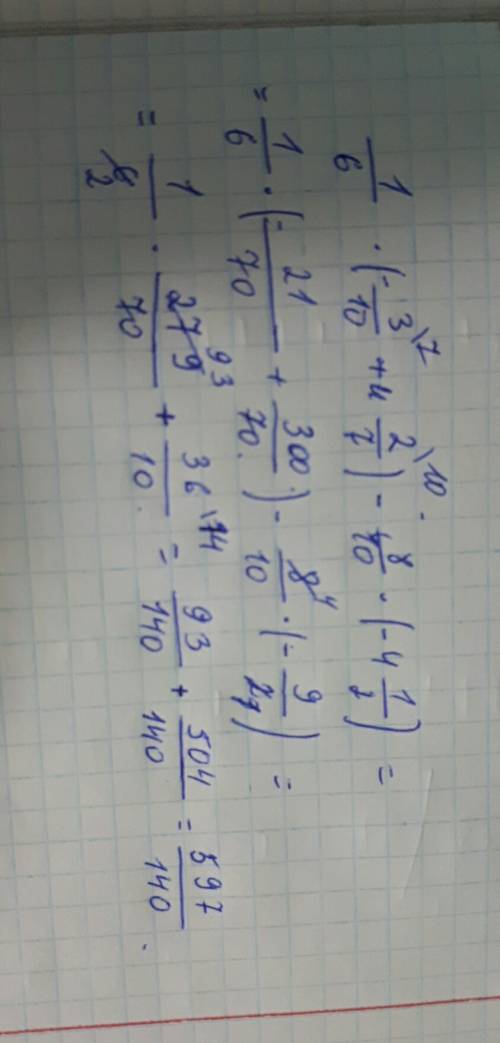 1/6 · (- 3/10 \7 + 4 2/7 \10) - 8/10 · (-4 1/2) =
= 1/6 · (- 21/70 + 300/70) - 8/10 4 · (- 9/2) =
= 1/6 2 · 279 93/70 + 36/10 \14 = 93/140 + 504/140 = 597/140.